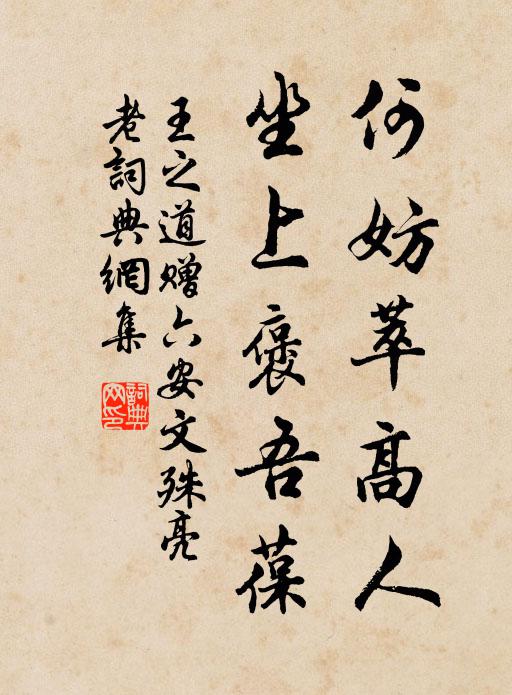 何妨萃高人
坐上褒吾葆
王之道赠六安文殊亮
老詞典網集
詞典网印